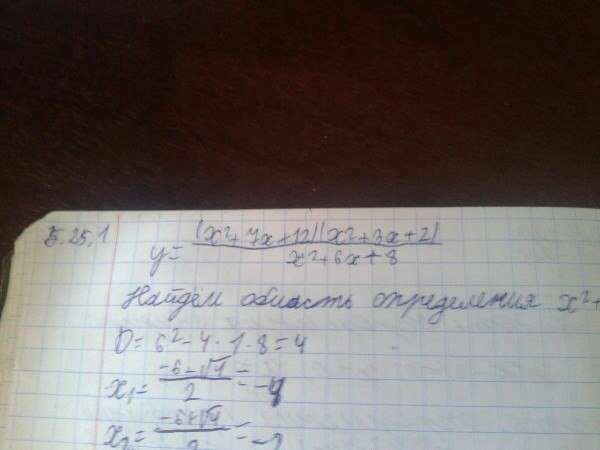 Б.25.1
y= (x²+7x+12)(x²+3x+2) / x²+6x+8
Найдём область определения x²+
D= 6²-4·1·8=4
x₁= -6-√4 / 2 = -4
x₂= -6+√4 / 2 = -2